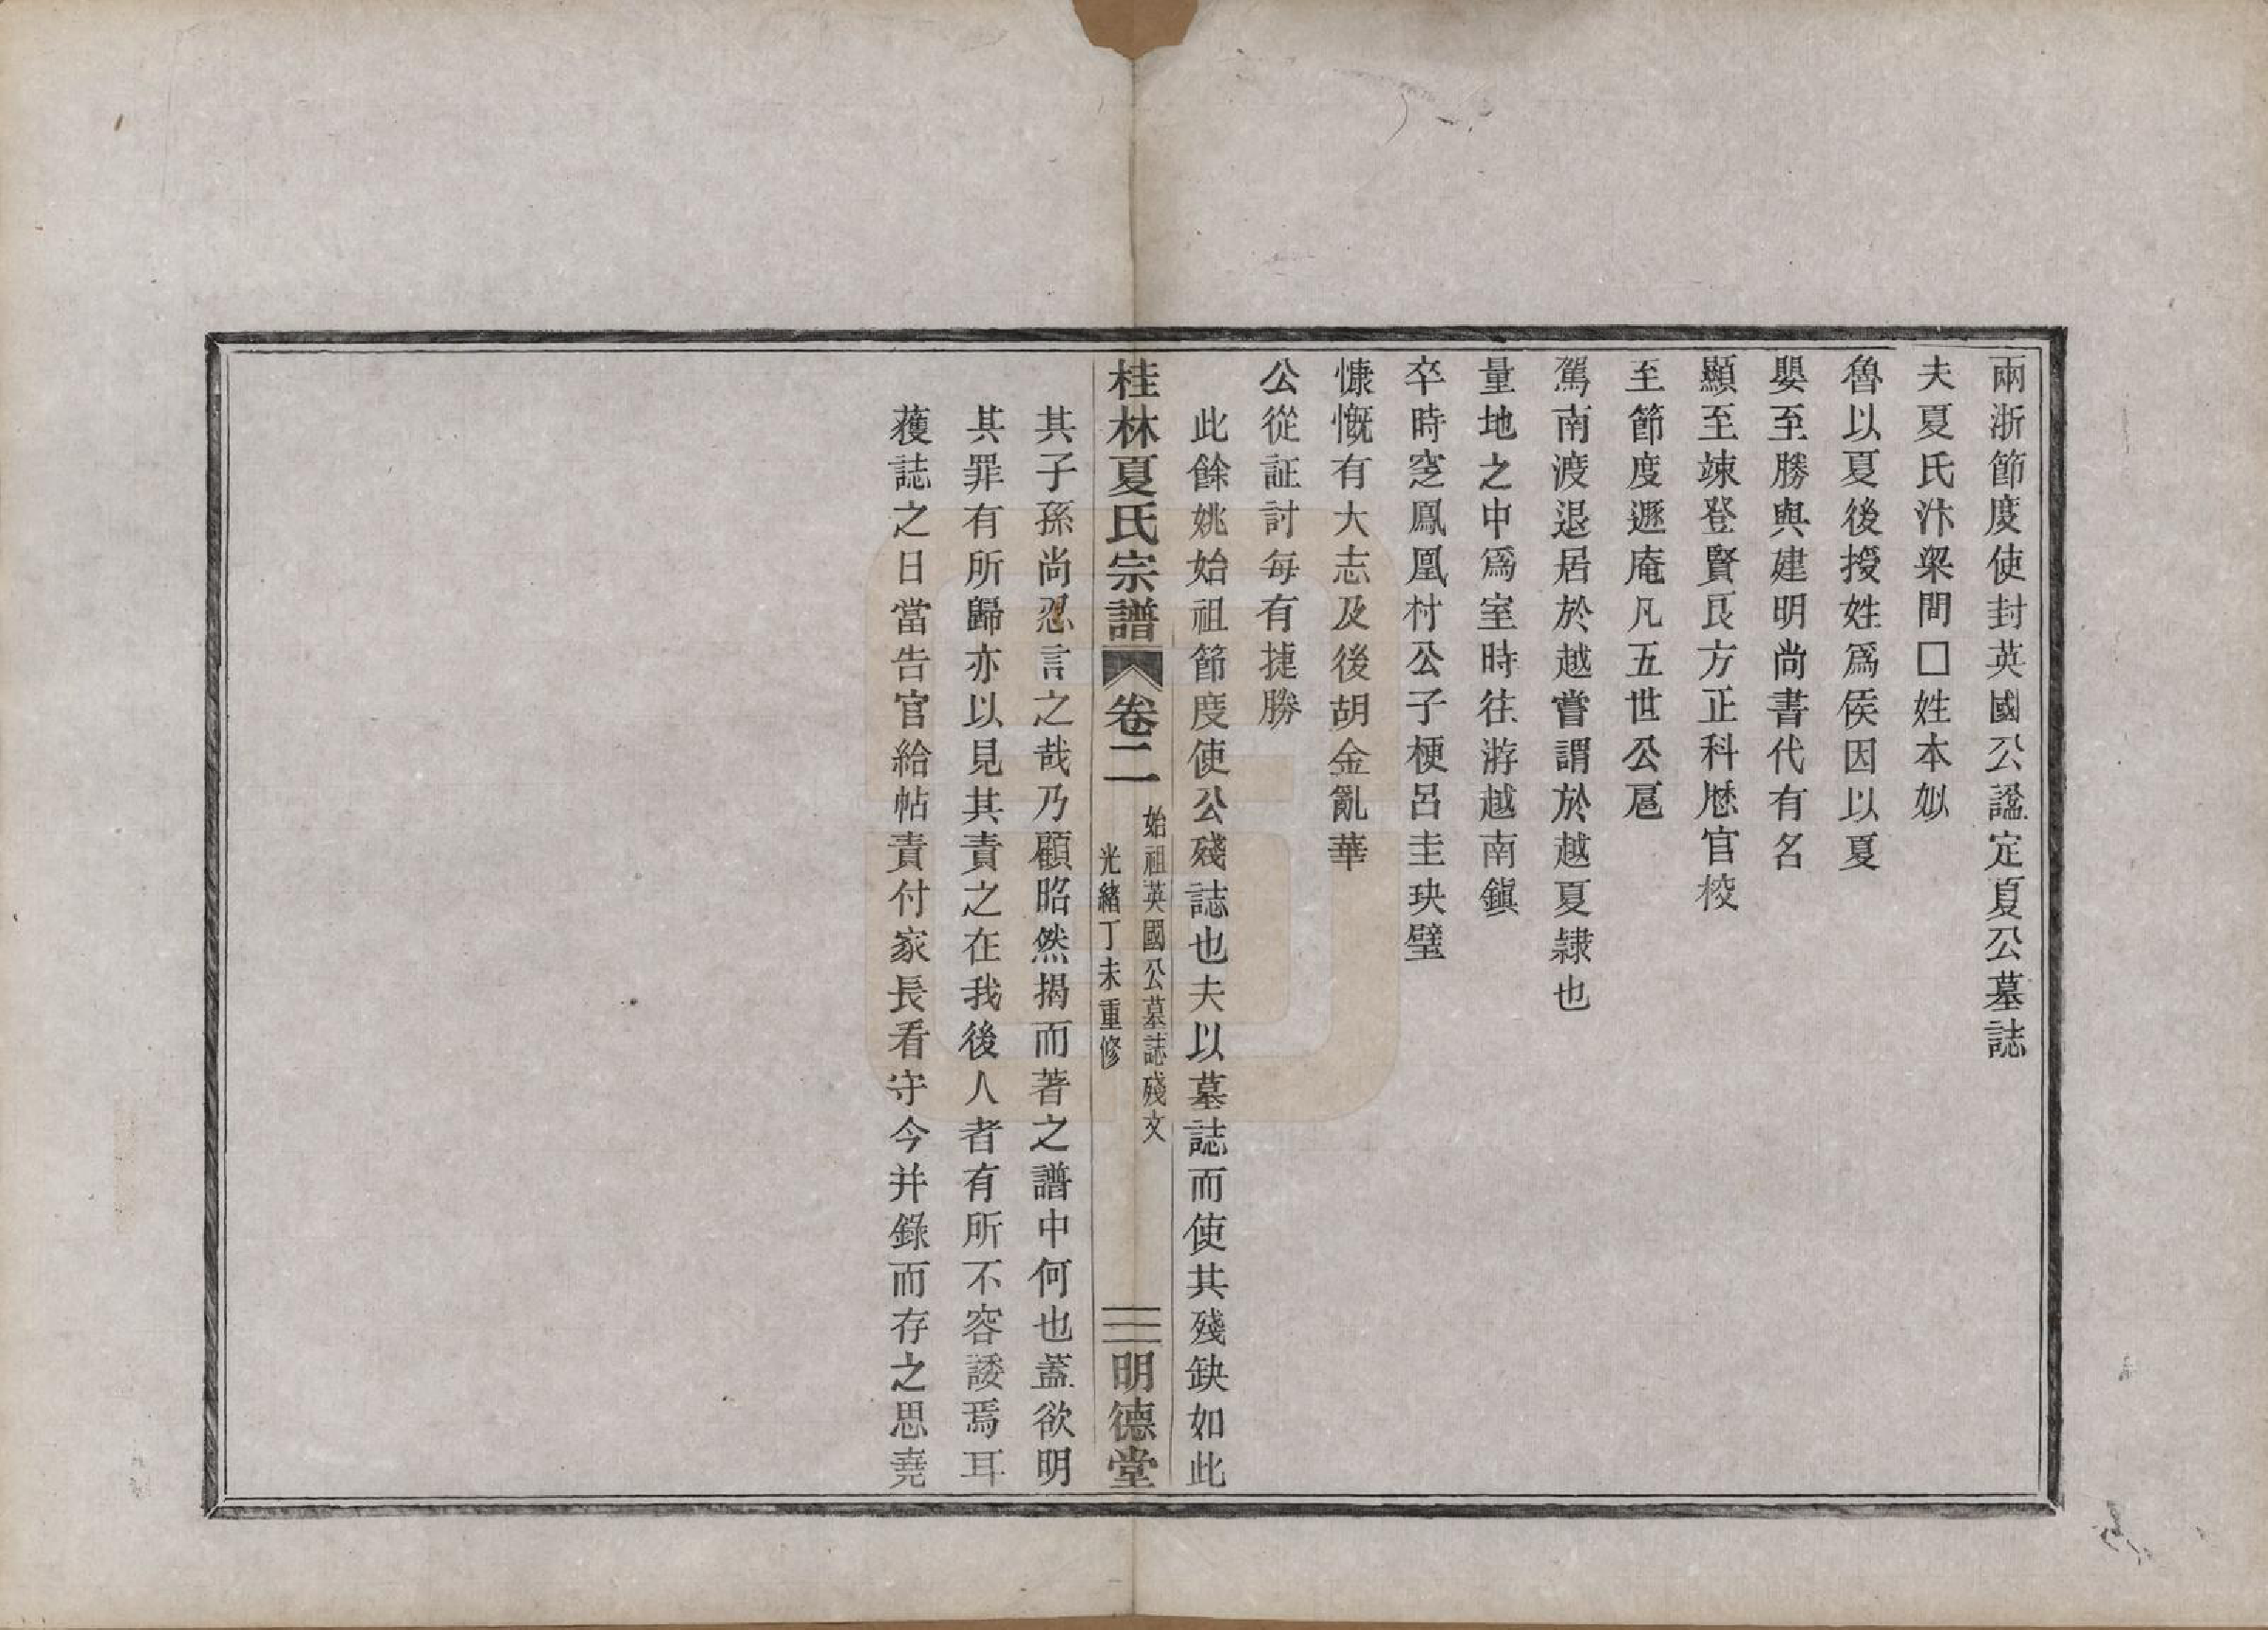 兩浙節度使封英國公諡定夏公墓誌
夫夏氏汴梁間□姓本姒
魯以夏後授姓爲侯因以夏
嬰至勝與建明尚書代有名
顯至竦登賢良方正科歷官校
至節度遯庵凡五世公扈
駕南渡退居於越嘗謂於越夏隷也
量地之中爲室時往游越南鎭
卒時窆鳳凰村公子梗呂圭玦璧
慷慨有大志及後胡金亂華
公從証討每有捷勝
此餘姚始祖節度使公殘誌也夫以墓誌而使其殘缺如此
桂林夏氏宗譜 卷二 始祖英國公墓誌殘文 光緒丁未重修 三 明德堂
其子孫尚忍言之哉乃顧昭然揭而著之譜中何也蓋欲明
其罪有所歸亦以見其責之在我後人者有所不容諉焉耳
蒦誌之日當告官給帖責付家長看守今并錄而存之思堯